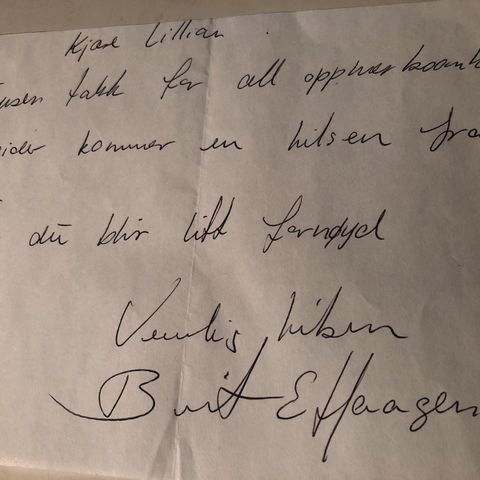 Kjære Lillian.
usen takk for all oppmerksomh
ider kommer en hilsen fra
du blir litt fornøyd
Vennlig hilsen
Berit E Haagen